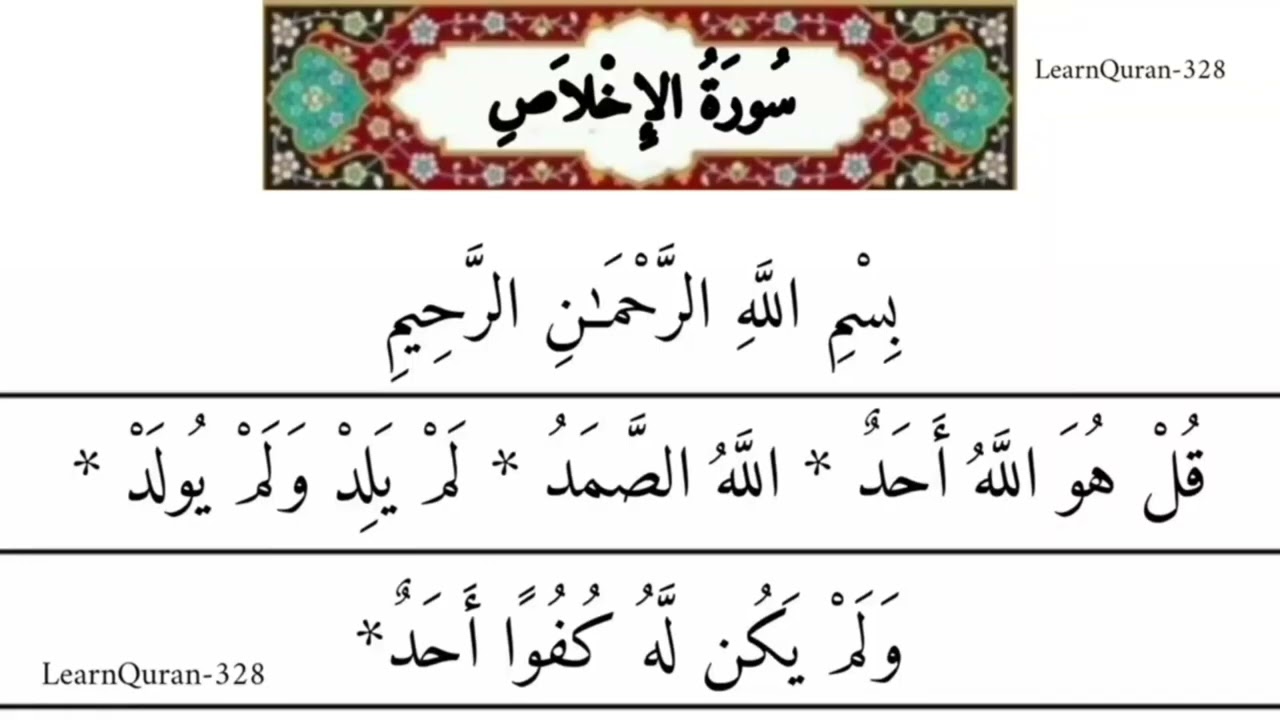 سُورَةُ الإِخْلاَصِ
LearnQuran-328
بِسْمِ اللَّهِ الرَّحْمَـٰنِ الرَّحِيمِ
قُلْ هُوَ اللَّهُ أَحَدٌ * اللَّهُ الصَّمَدُ * لَمْ يَلِدْ وَلَمْ يُولَدْ *
وَلَمْ يَكُن لَّهُ كُفُوًا أَحَدٌ *
LearnQuran-328